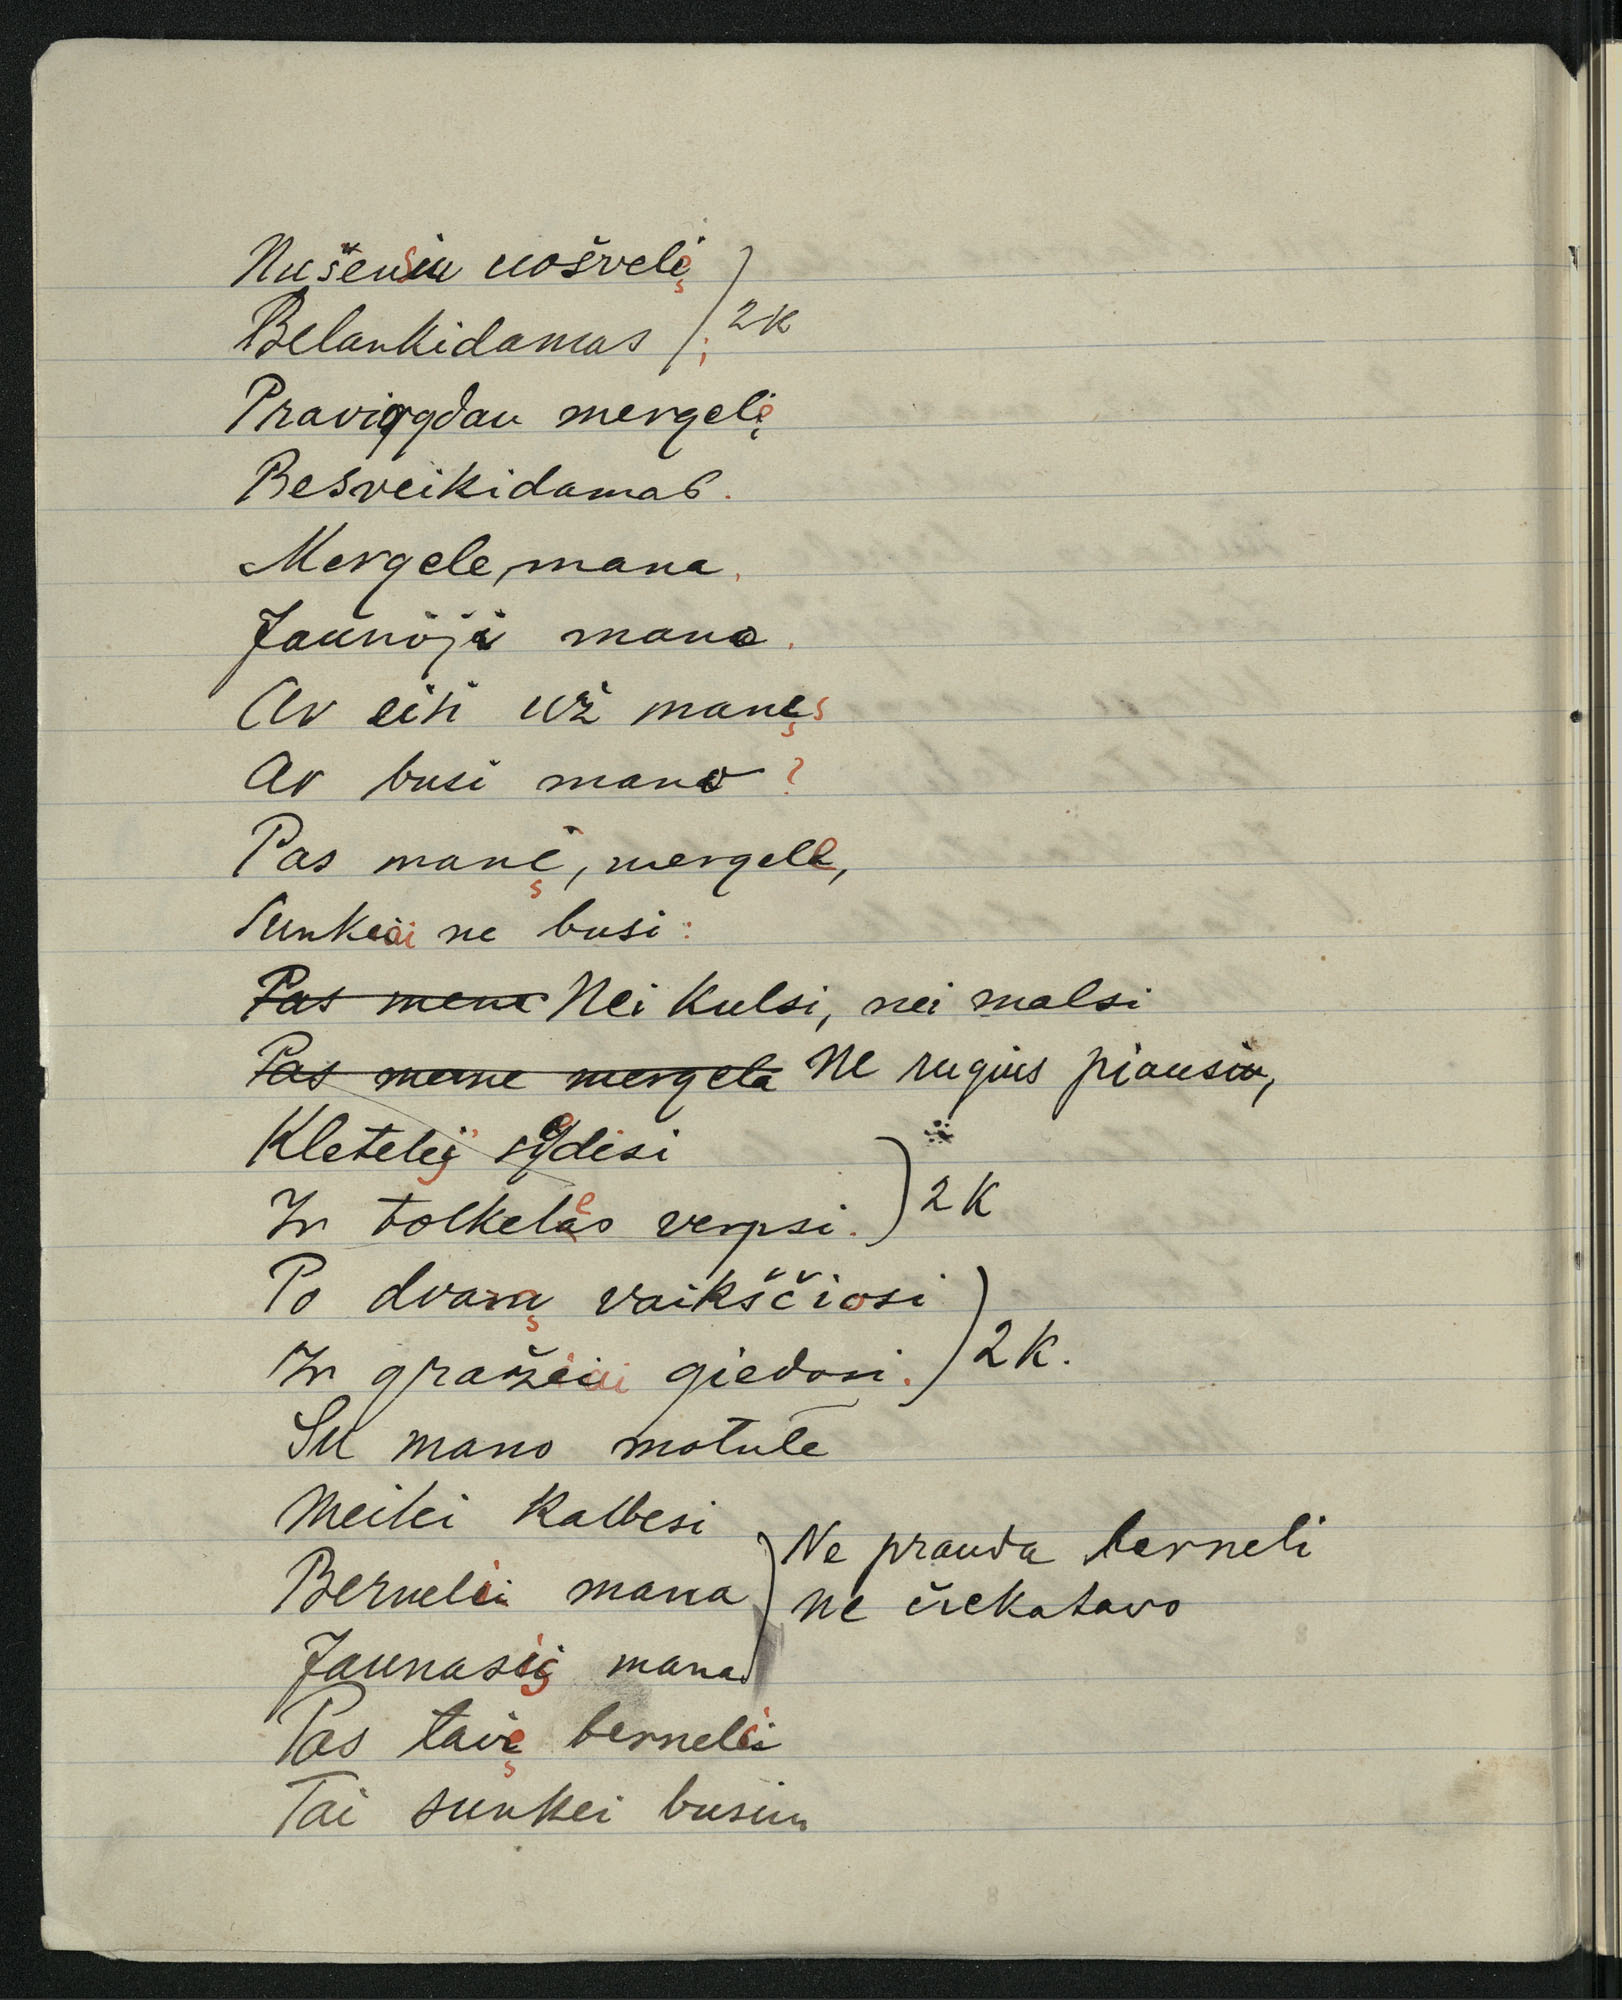 Nušensiu uošvelę
Belankidamas ; 2k
Pravirgdau mergelę
Besveikidamas.
Mergele, mana,
Jaunoji mano.
Ar eisi už manęs
Ar busi mano?
Pas manę, mergele,
Sunkiai ne busi:
Pas mene Nei kulsi, nei malsi
Pas mene mergela Ne rugius piausiu,
Kletelėj sėdėsi
Ir tolkelęs verpsi. 2k
Po dvarą vaikščiosi
Ir gražiai giedosi. 2k.
Su mano motute
Meilei kalbesi
Berneli mana
Ne prauda berneli
ne čiekatavo
Jaunasij mana
Pas tavę berneli
Tai sunkei busiu